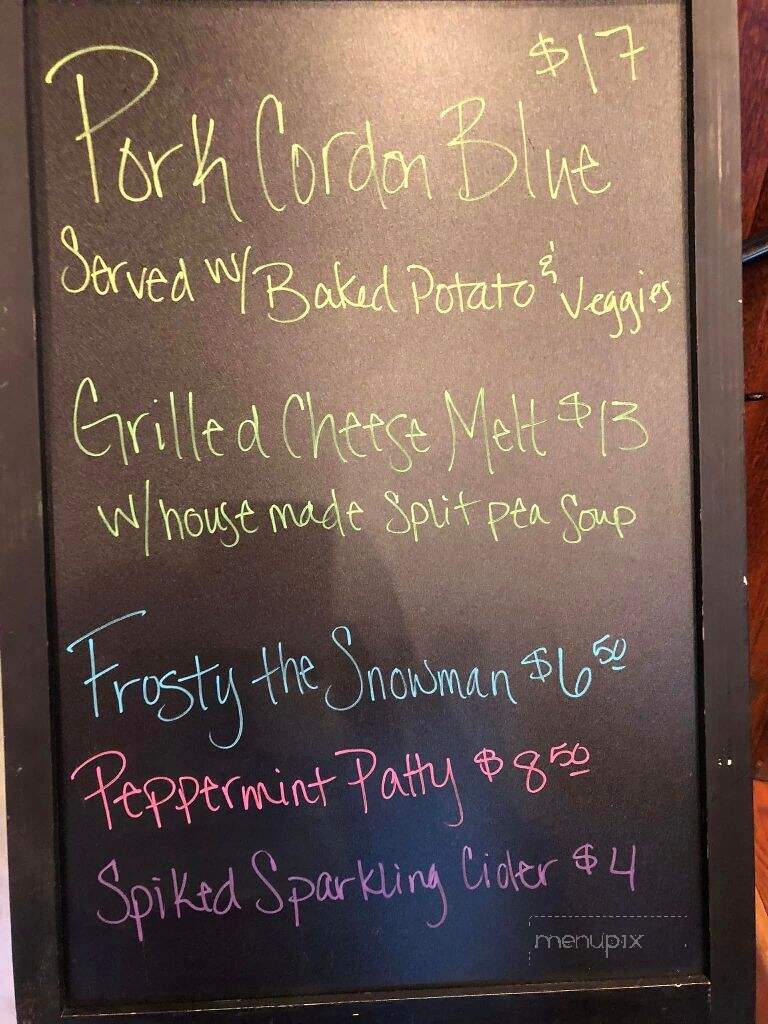 $17
Pork Cordon Blue
Served w/ Baked Potato & Veggies
Grilled Cheese Melt $13
w/house made Split pea Soup
Frosty the Snowman $6 50
Peppermint Patty $8 50
Spiked Sparkling Cider $4
menupix